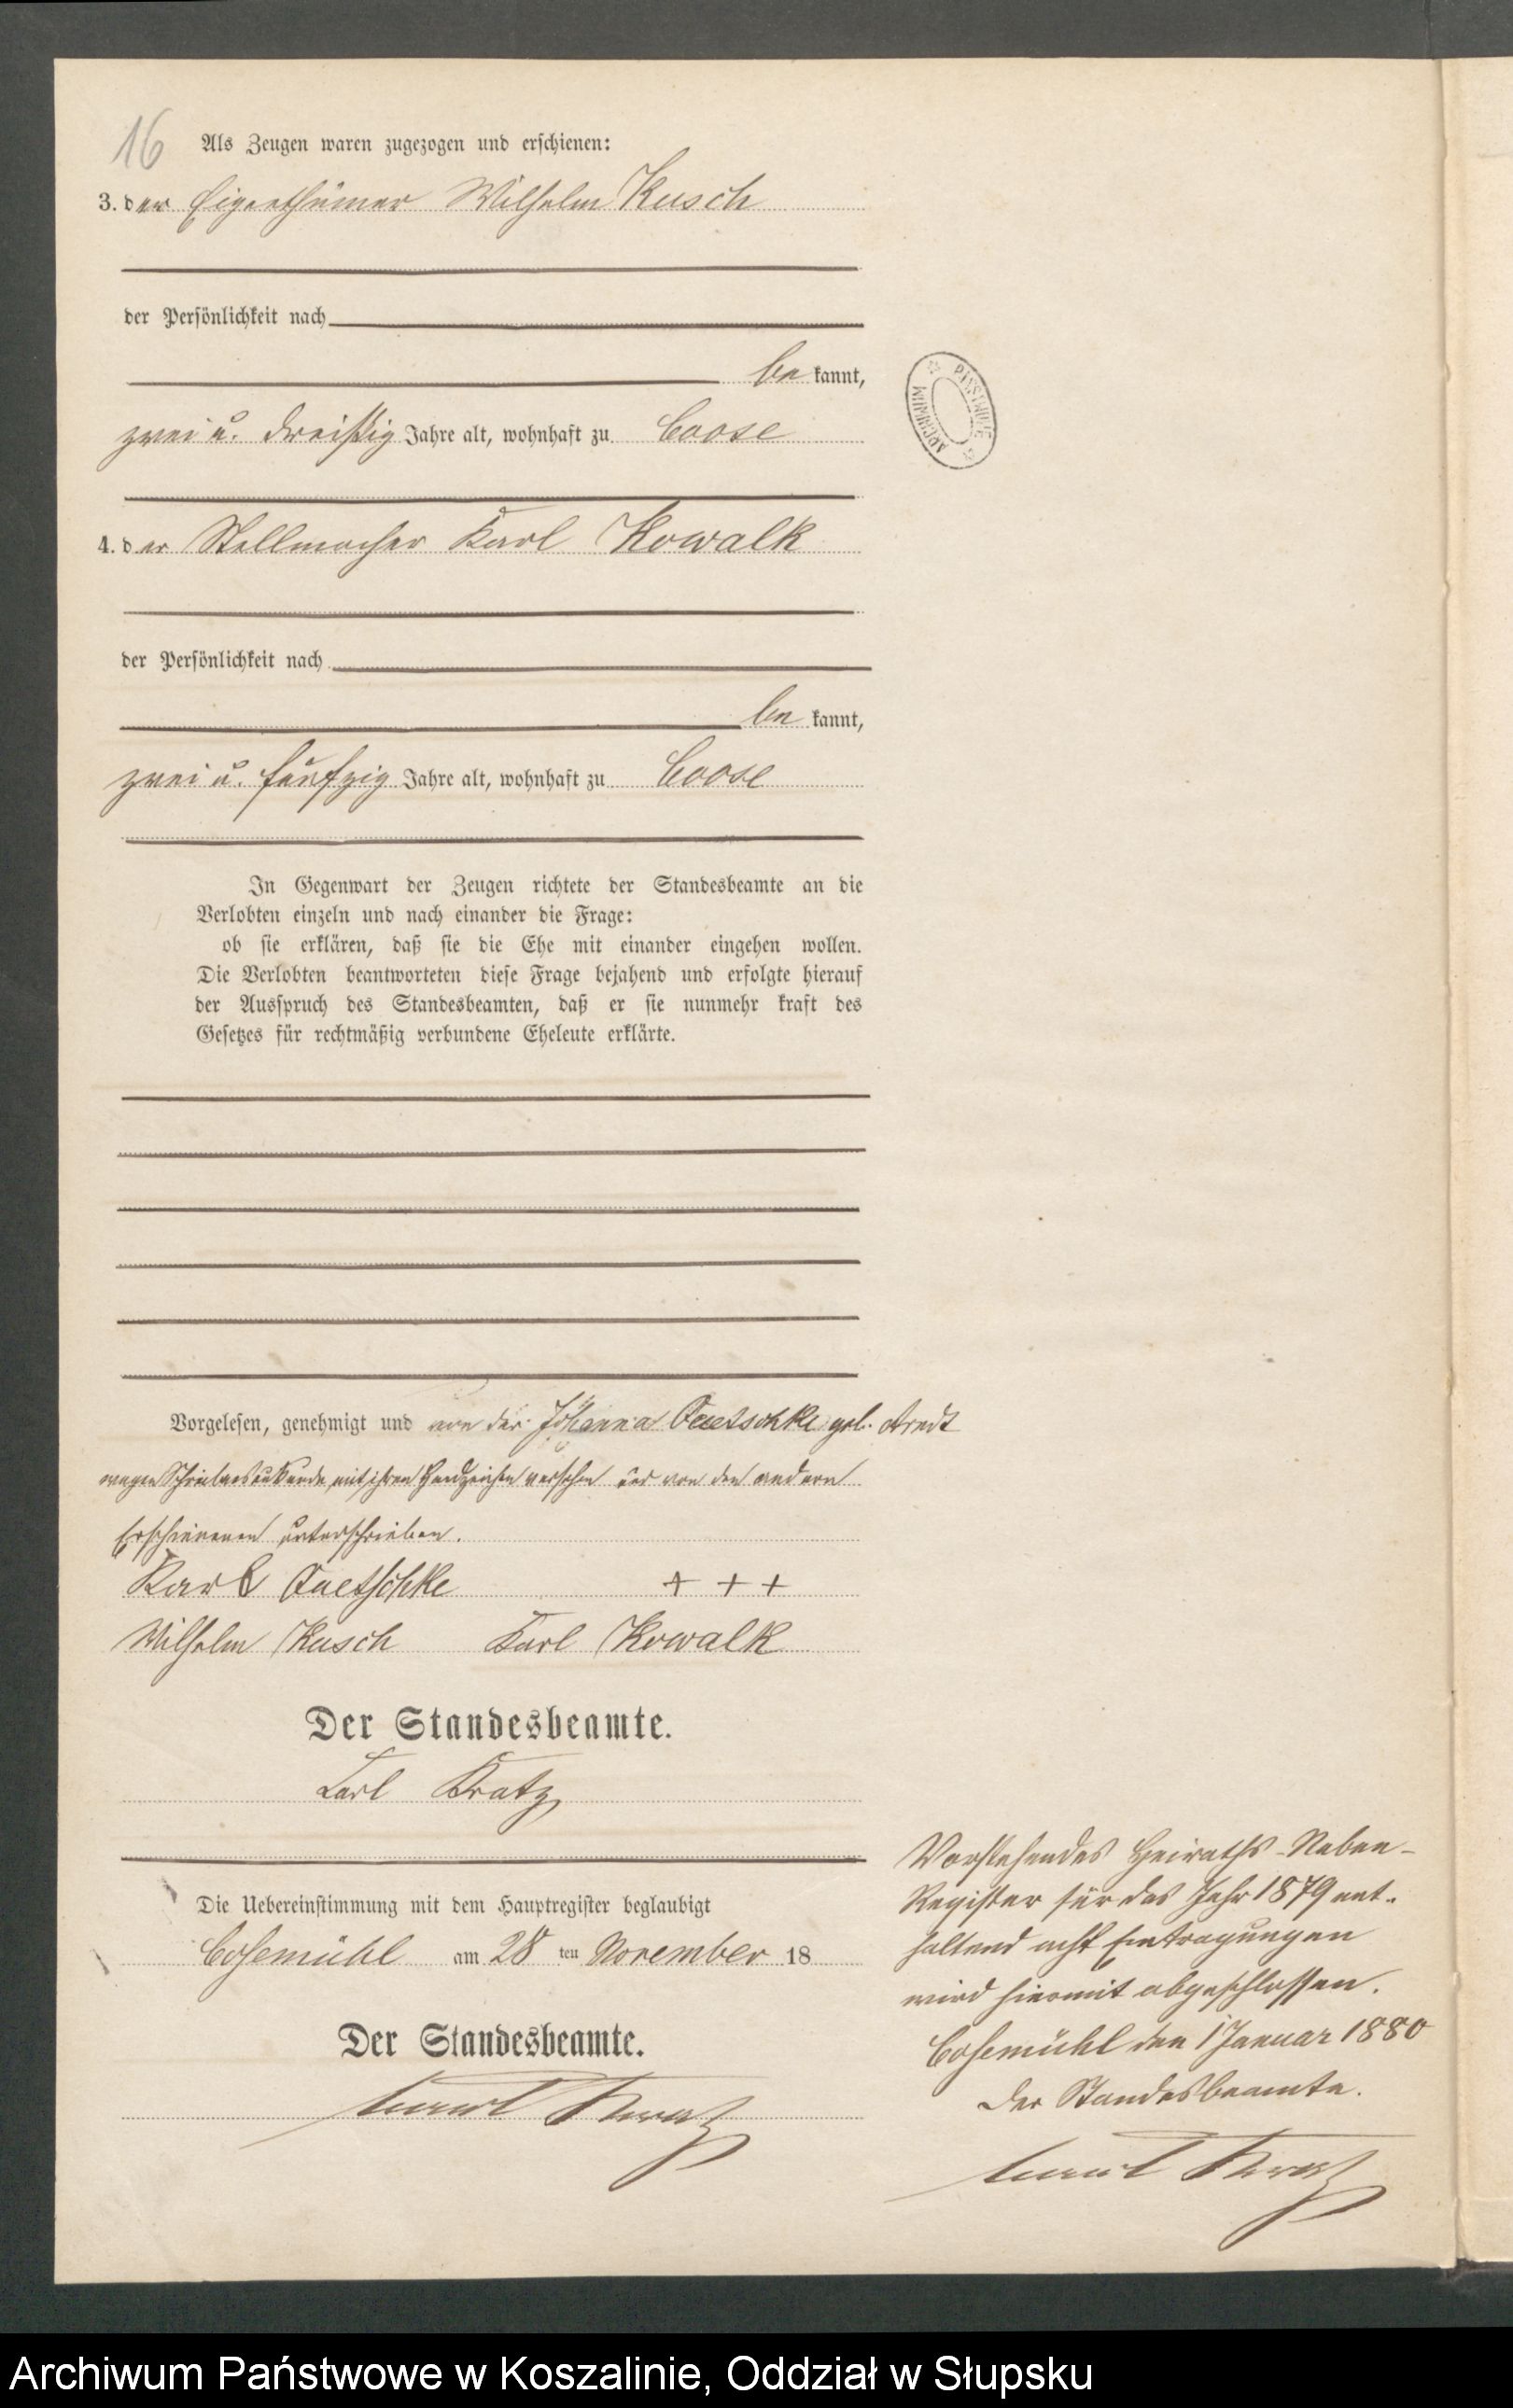 16
Als Zeugen waren zugezogen und erschienen:
3. der Eigenthümer Wilhelm Kusch
der Persönlichkeit nach
be kannt,
zwei u. dreißig Jahre alt, wohnhaft zu Coose
4. der Stellmacher Karl Kowalk
der Persönlichkeit nach
be kannt,
zwei u. fünfzig Jahre alt, wohnhaft zu Coose
In Gegenwart der Zeugen richtete der Standesbeamte an die
Verlobten einzeln und nach einander die Frage:
ob sie erklären, daß sie die Ehe mit einander eingehen wollen.
Die Verlobten beantworteten diese Frage bejahend und erfolgte hierauf
der Ausspruch des Standesbeamten, daß er sie nunmehr kraft des
Gesetzes für rechtmäßig verbundene Eheleute erklärte.
Vorgelesen, genehmigt und von der Johanna geb. Arndt
wegen Schreibensunkunde mit ihrem Handzeichen versehen und von den andern
Erschienenen unterschrieben.
Karl + + +
Wilhelm Kusch Karl Kowalk
Der Standesbeamte.
Karl Kratz
Die Uebereinstimmung mit dem Hauptregister beglaubigt
Cosemühl am 28 ten November 18
Der Standesbeamte.
Karl Kratz
ARCHIWUM PAŃSTWOWE
Vorstehendes Heiraths-Neben-
Register für das Jahr 1879 ent-
haltend acht Eintragungen
wird hiermit abgeschlossen.
Cosemühl den 1 Januar 1880
Der Standesbeamte.
Karl Kratz
Archiwum Państwowe w Koszalinie, Oddział w Słupsku